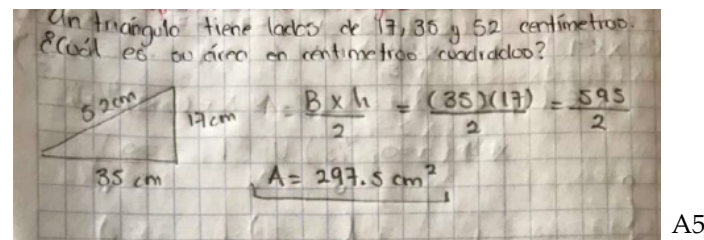 Un triángulo tiene lados de 17, 35 y 52 centímetros.
¿Cuál es su área en centímetros cuadrados?
52cm
17cm
35 cm
A = B x h / 2 = (35)(17) / 2 = 595 / 2
A = 297.5 cm²
A5